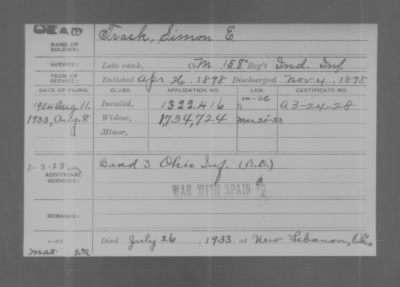 DEAD
NAME OF SOLDIER: Trask, Simon E
SERVICE: Late rank, Co. M, 158" Reg't Ind. Inf
TERM OF SERVICE: Enlisted Apr. 26, 1898 Discharged Nov 4, 1898
DATE OF FILING. CLASS. APPLICATION NO. LAW CERTIFICATE NO.
1924 Aug 11. Invalid, 1322,416 A-3-24-28
1933, Aug, 8 Widow, 1734,724
Minor,
3-3-28
ADDITIONAL SERVICES: Band 3 Ohio Inf. (B.B.)
WAR WITH SPAIN
REMARKS:
Died July 26, 1933, at New Lebanon,